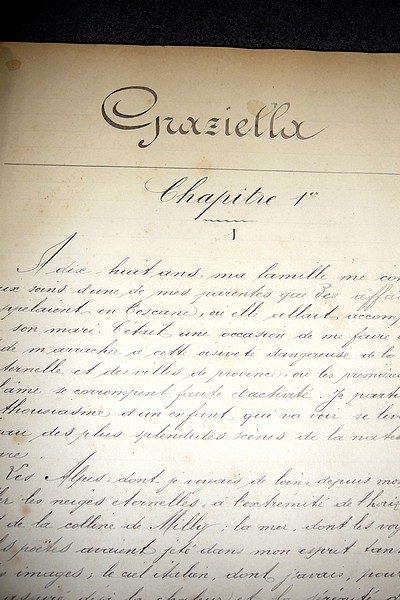 Graziella
Chapitre 1er
1
A dix-huit ans, ma famille me con
ux soins d'une de mes parentes que des affai
ppelaient en Toscane, où elle allait accomp
son mari. C'était une occasion de me faire
de m'arracher à cette oisiveté dangereuse de la
ternelle et des villes de province, où les première
l'âme se corrompent faute d'activité. Je parti
thousiasme d'un enfant qui va voir se lev
eau des plus splendides scènes de la natu
ure.
Les Alpes, dont je voyais de loin, depuis mo
ler les neiges éternelles, à l'extrémité de l'horiz
de la colline de Milly; la mer, dont les voy
s poëtes avaient jeté dans mon esprit tan
s images; le ciel italien, dont j'avais, pour
déjà la chaleur et la sérénité d